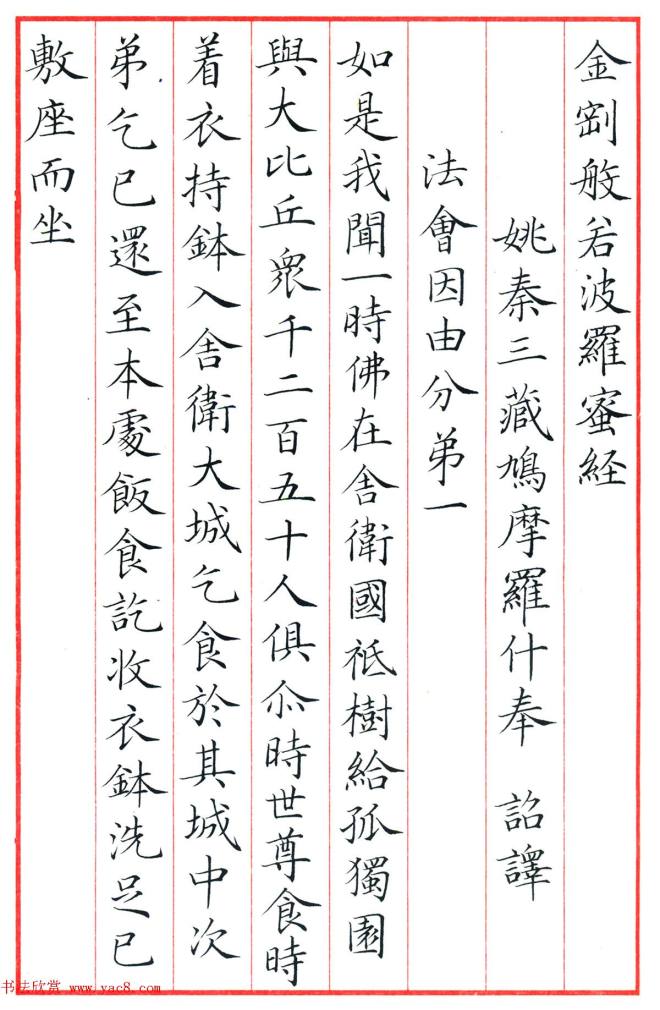 金剛般若波羅蜜経
姚秦三藏鳩摩羅什奉 詔譯
法會因由分弟一
如是我聞一時佛在舍衛國祗樹給孤獨園
與大比丘眾千二百五十人俱尒時世尊食時
着衣持鉢入舍衛大城乞食於其城中次
弟乞已還至本處飯食訖收衣鉢洗足已
敷座而坐
书法欣赏 www.yac8.com